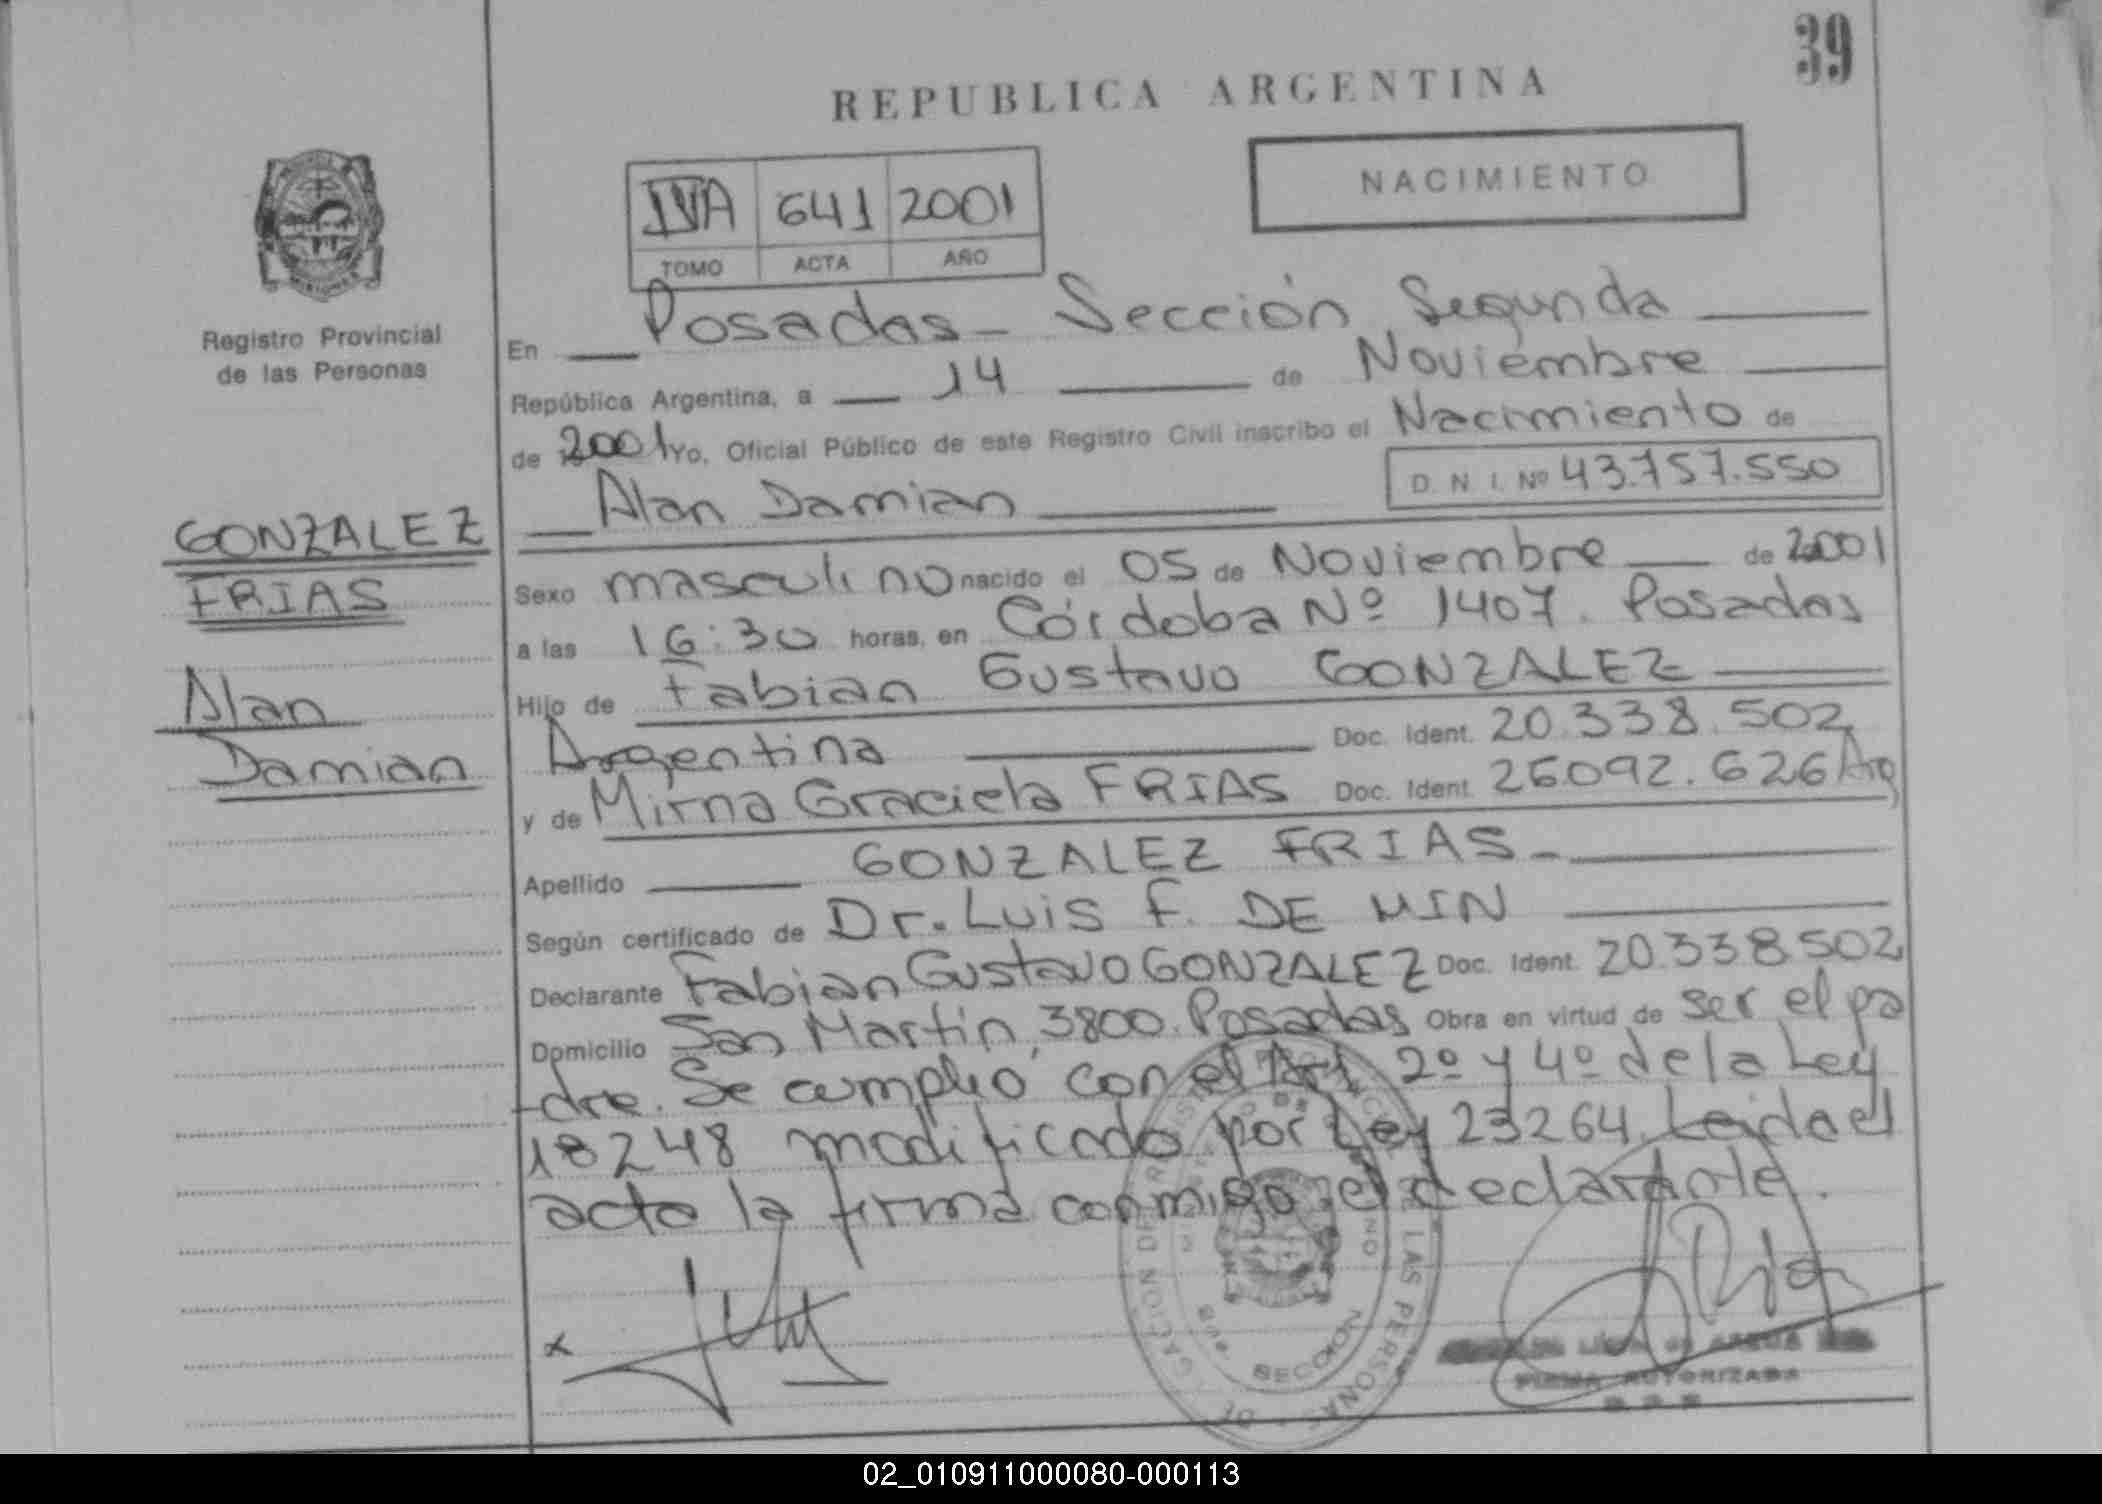 39
REPUBLICA ARGENTINA
NACIMIENTO
IVA 641 2001
TOMO ACTA AÑO
Registro Provincial
de las Personas
GONZALEZ
FRIAS
Alan
Damian
En Posadas - Sección Segunda
República Argentina, a 14 de Noviembre
de 2001 Yo, Oficial Público de este Registro Civil inscribo el Nacimiento de
Alan Damian D. N. I. Nº 43.757.550
Sexo masculino nacido el 05 de Noviembre de 2001
a las 16:30 horas, en Córdoba Nº 1407. Posadas
Hijo de Fabian Gustavo GONZALEZ
Argentina Doc. Ident. 20.338.502
y de Mirna Graciela FRIAS Doc. Ident. 26.092.626 Arg
Apellido GONZALEZ FRIAS -
Según certificado de Dr. Luis F. DE MIN
Declarante Fabian Gustavo GONZALEZ Doc. Ident. 20.338.502
Domicilio San Martin, 3800. Posadas Obra en virtud de ser el pa
-dre. Se cumplió con el Art. 2º y 4º de la Ley
18248 modificado por Ley 23264. Leida el
acta la firma conmigo el declarante.
x
SECCION
FIRMA AUTORIZADA
02_010911000080-000113